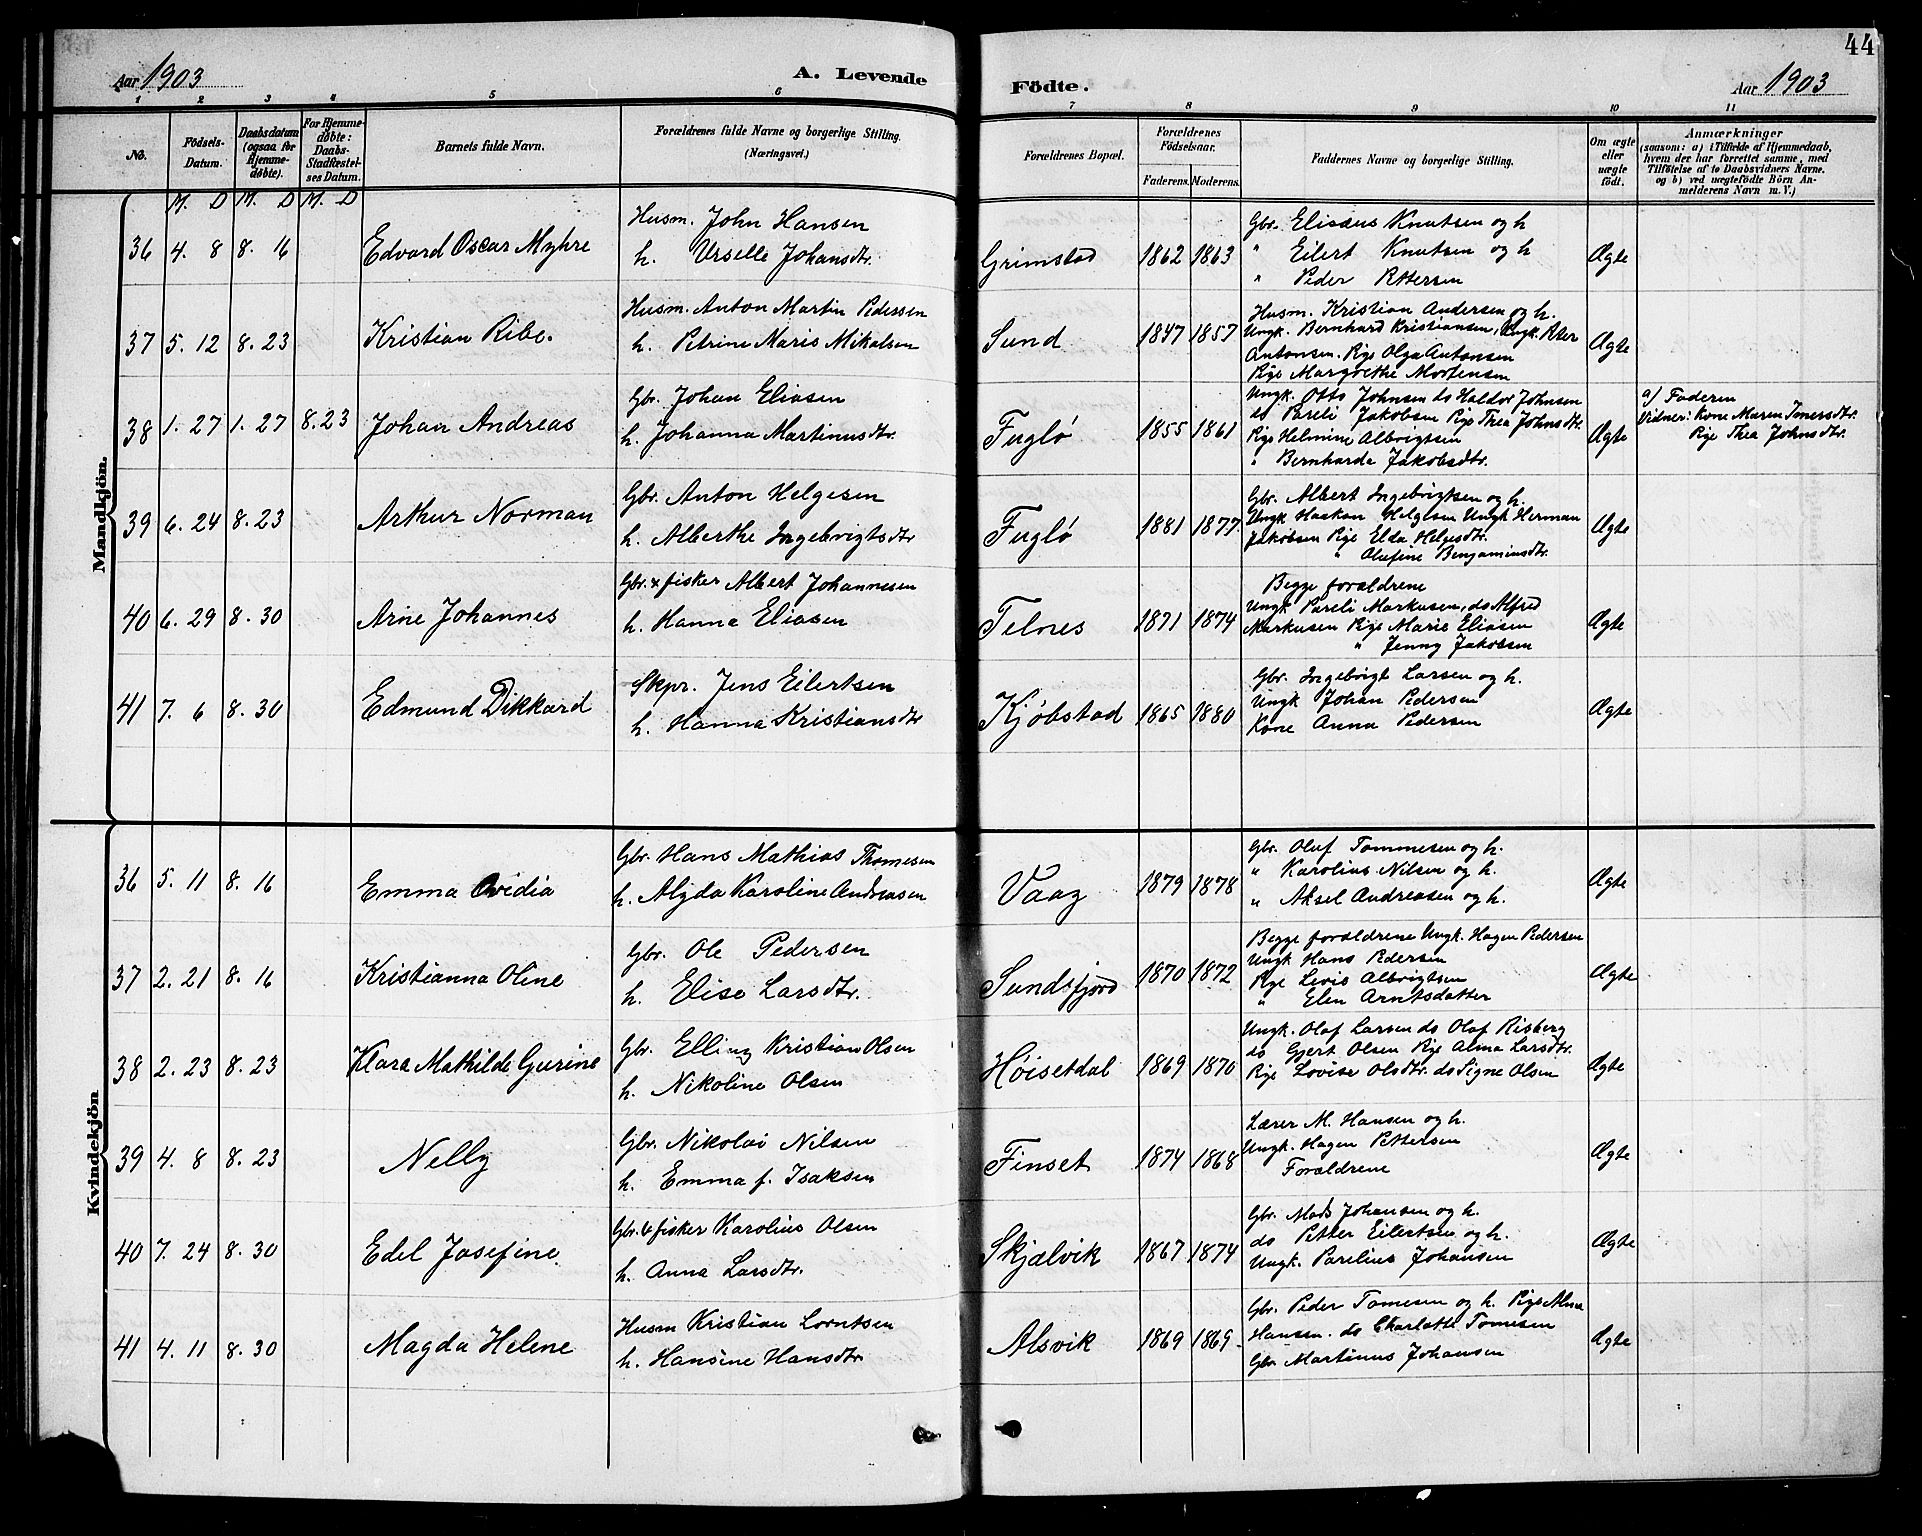 44
Aar 1903
A. Levende
Födte.
Aar 1903
1 2 3 4 5 6 7 8 9 10 11
No.
Födsels-
Datum.
Daabsdatum
(ogsaa for
Hjemme-
döbte).
For Hjemme-
döbte:
Daabs-
Stadfæstel-
ses Datum.
Barnets fulde Navn.
Forældrenes fulde Navne og borgerlige Stilling.
(Næringsvei.)
Forældrenes Bopæl.
Forældrenes
Födselsaar.
Faderens. Moderens.
Faddernes Navne og borgerlige Stilling.
Om ægte
eller
uægte
födt.
Anmærkninger
(saasom: a) i Tilfælde af Hjemmedaab,
hvem der har forrettet samme, med
Tilföielse af to Daabsvidners Navne,
og b) ved uægtefödte Börn An-
melderens Navn m. V.)
M. D M. D M. D
Mandkjön.
36 4. 8 8. 16
Edvard Oscar Myhre
Husm. John Hansen
h. Urselle Johansdtr.
Grimstad
1862 1863
Gbr. Eliseus Knutsen og h
" Eilert Knutsen og h
" Peder Pettersen
Ægte
37 5. 12 8. 23
Kristian Ribe.
Husm. Anton Martin Pedersen
h. Petrine Maris Mikalsen
Sund
1847 1857
Husm. Kristian Andersen og h.
Ungk. Bernhard Kristiansen, Ungk. Peter
Antonsen. Pige Olga Antonsen
Pige Margrethe Mortensen
Ægte
38 1. 27 1. 27 8. 23
Johan Andreas
Gbr. Johan Eliasen
h. Johanna Martinusdtr.
Fuglø
1855 1861
Ungk. Otto Johnsen do Haldor Johnsen
do Pareli Jakobsen Pige Thea Johnsdtr.
Pige Helmine Albrigtsen
" Bernharda Jakobsdtr.
Ægte
a) Faderen
Vidner: Kone Maren Tomesdtr.
Pige Thea Johnsdtr.
39 6. 24 8. 23
Arthur Norman
Gbr. Anton Helgesen
h. Alberthe Ingebrigtsdtr
Fuglø
1881 1877.
Gbr. Albert Ingebrigtsen og h.
Ungk Haakon Helgesen Ungk Herman
Jakobsen Pige Elda Helgesdtr.
" Olufine Benjaminsdtr.
Ægte
40 6. 29 8. 30
Arne Johannes
Gbr. & fisker Albert Johannesen
h. Hanna Eliasen
Telnes
1871 1874
Begge forældrene
Ungk Pareli Markusen, do Alfred
Markusen Pige Marie Eliasen
" Jenny Jakobsen
Ægte
41 7. 6 8. 30
Edmund Dikkard
Skpr. Jens Eilertsen
h. Hanna Kristiansdtr
Kjøbstad
1865 1880
Gbr. Ingebrigt Larsen og h.
Ungk Johan Pedersen
Kone Anna Pedersen
Ægte
Kvindekjön
36 5. 11 8. 16
Emma Ovidia
Gbr. Hans Mathias Thomesen
h. Alyda Karoline Andreasen
Vaag
1879 1878
Gbr. Oluf Tommesen og h.
" Karolius Nilsen og h.
" Aksel Andreasen og h.
Ægte
37 2. 21 8. 16
Kristianna Oline
Gbr. Ole Pedersen
h. Elise Larsdtr.
Sundsfjord
1870 1872
Begge forældrene Ungk. Hagen Pedersen
Ungk Hans Pedersen
Pige Lovis Albrigtsen
" Elen Arntsdatter
Ægte
38 2. 23 8. 23
Klara Mathilde Gurine
Gbr. Elling Kristian Olsen
h. Nikoline Olsen
Høisetdal
1869 1870
Ungk. Olaf Larsen do Olaf Risberg
do Gjert Olsen Pige Alma Larsdtr.
Pige Lovise Olsdtr. do Signe Olsen
Ægte
39 4. 8 8. 23
Nelly
Gbr. Nikolai Nilsen
h. Emma f. Isaksen
Finset
1874 1868
Lærer M. Hansen og h.
Ungk. Hagen Pettersen
Forældrene
Ægte
40 7. 24 8. 30
Edel Josefine.
Gbr. & fisker Karolius Olsen
h. Anna Larsdtr.
Skjælvik
1867 1874
Gbr. Mads Johansen og h.
do Petter Eilertsen og h.
Ungk. Parelius Johansen
Ægte
41 4. 11 8. 30
Magda Helene
Husm Kristian Lorntsen
h. Hansine Hansdtr.
Alsvik
1869 1869
Gbr. Peder Tomesen og h. Pige Alma
Hansen. do Charlotte Tomesen
Gbr Martinus Johansen
Ægte